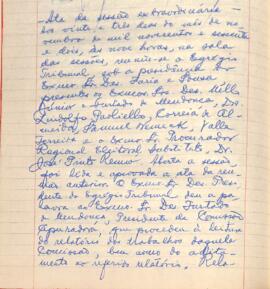 Ata da sessão extraordinaria
dos vinte e tres dias do mês de no
vembro de mil novecentos e sessenta
e dois, às nove horas, na sala
das sessões, reuniu-se o Egregio
Tribunal, sob a presidencia do
Exmo Sr. Des. Faria e Sousa
presentes os Exmos. Srs. Des. Mello
Junior e Furtado de Mendonça, Drs
Lindolfo Padiello, Correia de Al
meida, Samuel Werneck, Valle
Ferreira e o Exmo Sr. Procurador
Regional Eleitoral Substituto, Dr.
José Pinto Renno. Aberta a sessão,
foi lida e aprovada a ata da reu
nião anterior. O Exmo Sr. Des. Presi
dente do Egregio Tribunal deu a pa
lavra ao Exmo. Sr. Des. Furtado
de Mendonça, Presidente da Comissão
Apuradora, que procedeu à leitura
do relatório dos trabalhos daquela
Comissão, bem como do adita
mento ao referido relatório.